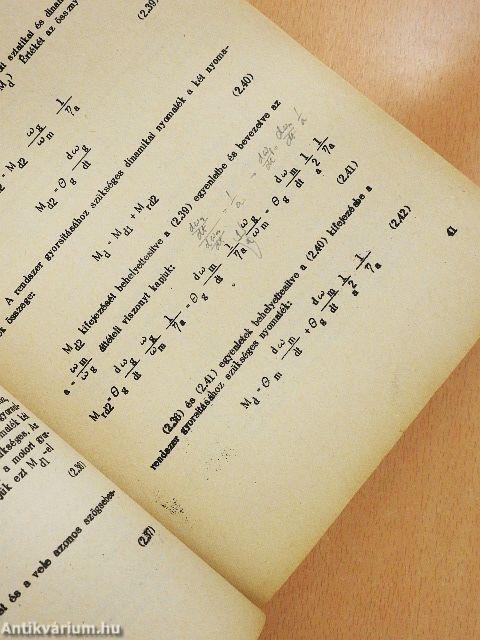 ai sztatikai és dinam
M_d) Értékét az össny
(2.39)
= M_d2 ω_g/ω_m 1/η_a
M_d2 = Θ_g dω_g/dt
A rendszer gyorsításához szükséges dinamikai nyomaték a két nyoma-
ék összege:
M_d = M_d1 + M_rd2 (2.40)
M_d2 kifejezését behelyettesítve a (2.39) egyenletbe és bevezetve az
a = ω_m/ω_g áttételi viszonyt kapjuk:
M_rd2 = Θ_g dω_g/dt ω_g/ω_m 1/η_a = Θ_g dω_m/dt 1/a ω_g/ω_m 1/η_a = Θ_g dω_m/dt 1/a² 1/η_a (2.41)
(2.38) és (2.41) egyenletek behelyettesítve a (2.40) kifejezésbe a
rendszer gyorsításához szükséges nyomaték:
M_d = Θ_m dω_m/dt + Θ_g dω_m/dt 1/a² 1/η_a (2.42)
41
a motori gy
jük ezt M_d1-el
(2.36)
at és a vele azonos szögsebes-
(2.37)
Antikvárium.hu